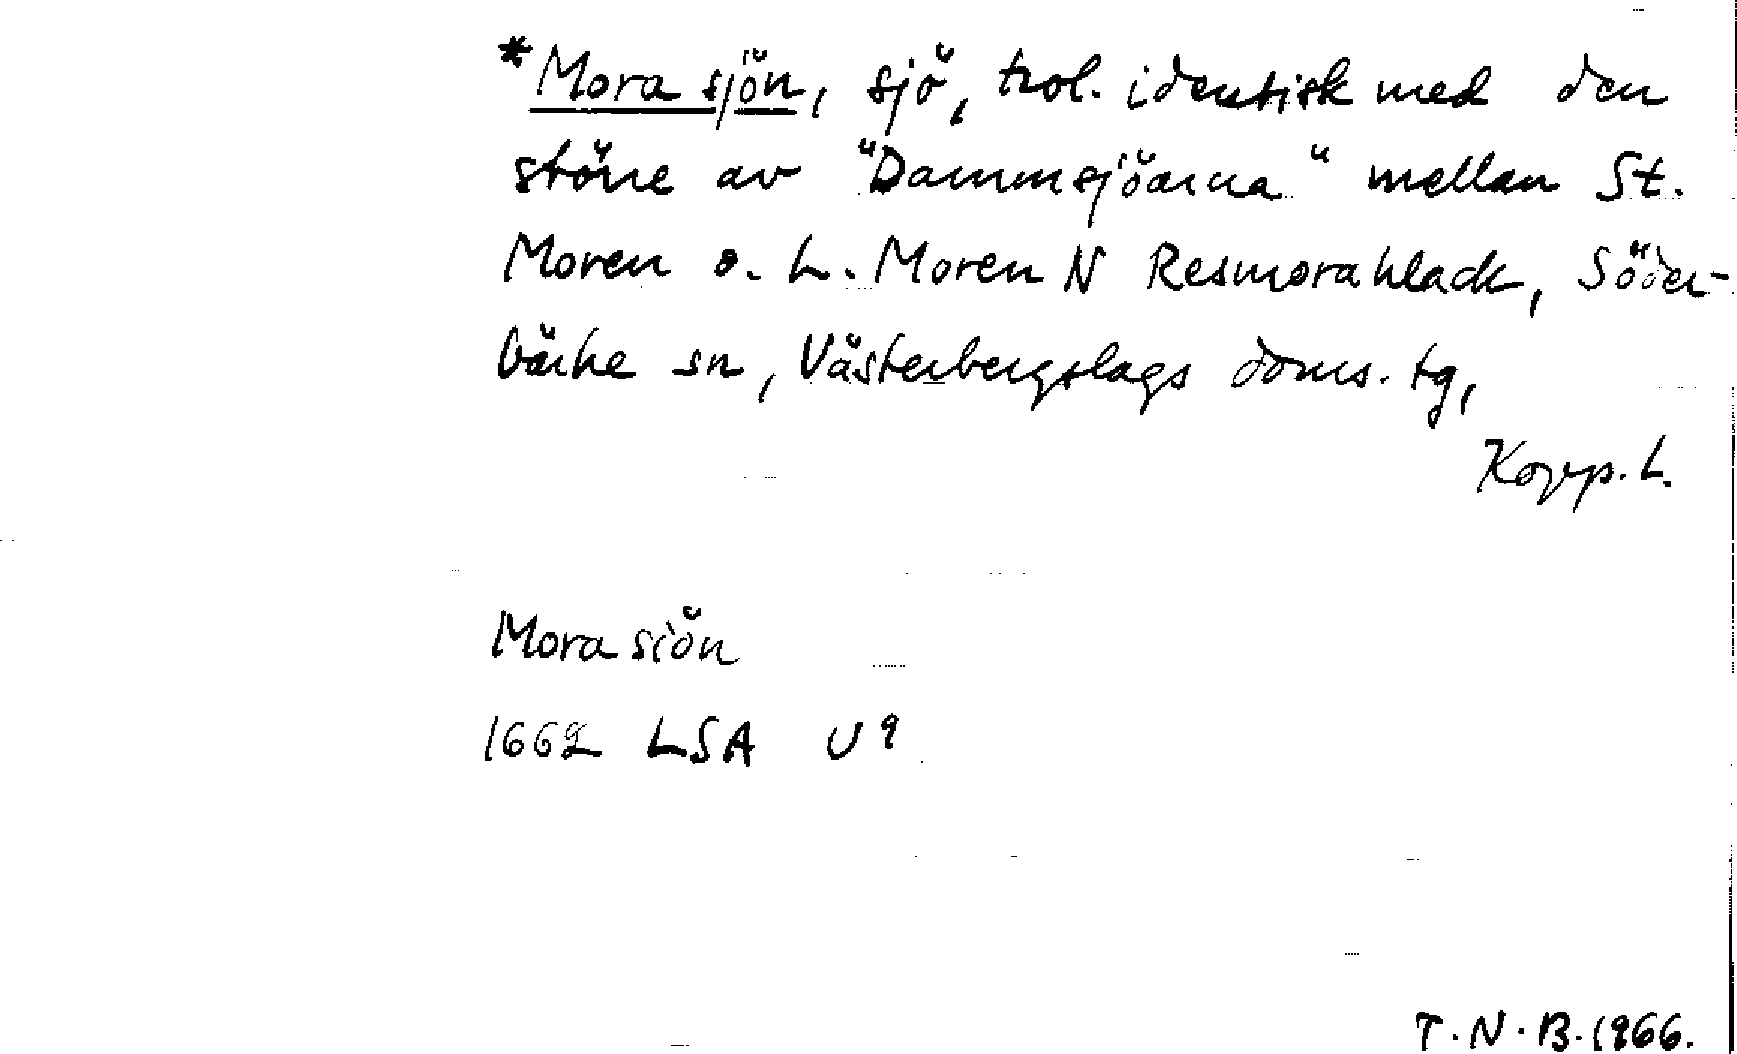 *Mora sjön, sjö, trol. identisk med den
större av "Dammsjöarna" mellan St.
Moren o. L. Moren N Resmorahlack, Söder-
bärke sn, Västerbergslags doms. tg,
Kopp. L.
Mora siön
1662 LSA U9
T.N.B. 1966.